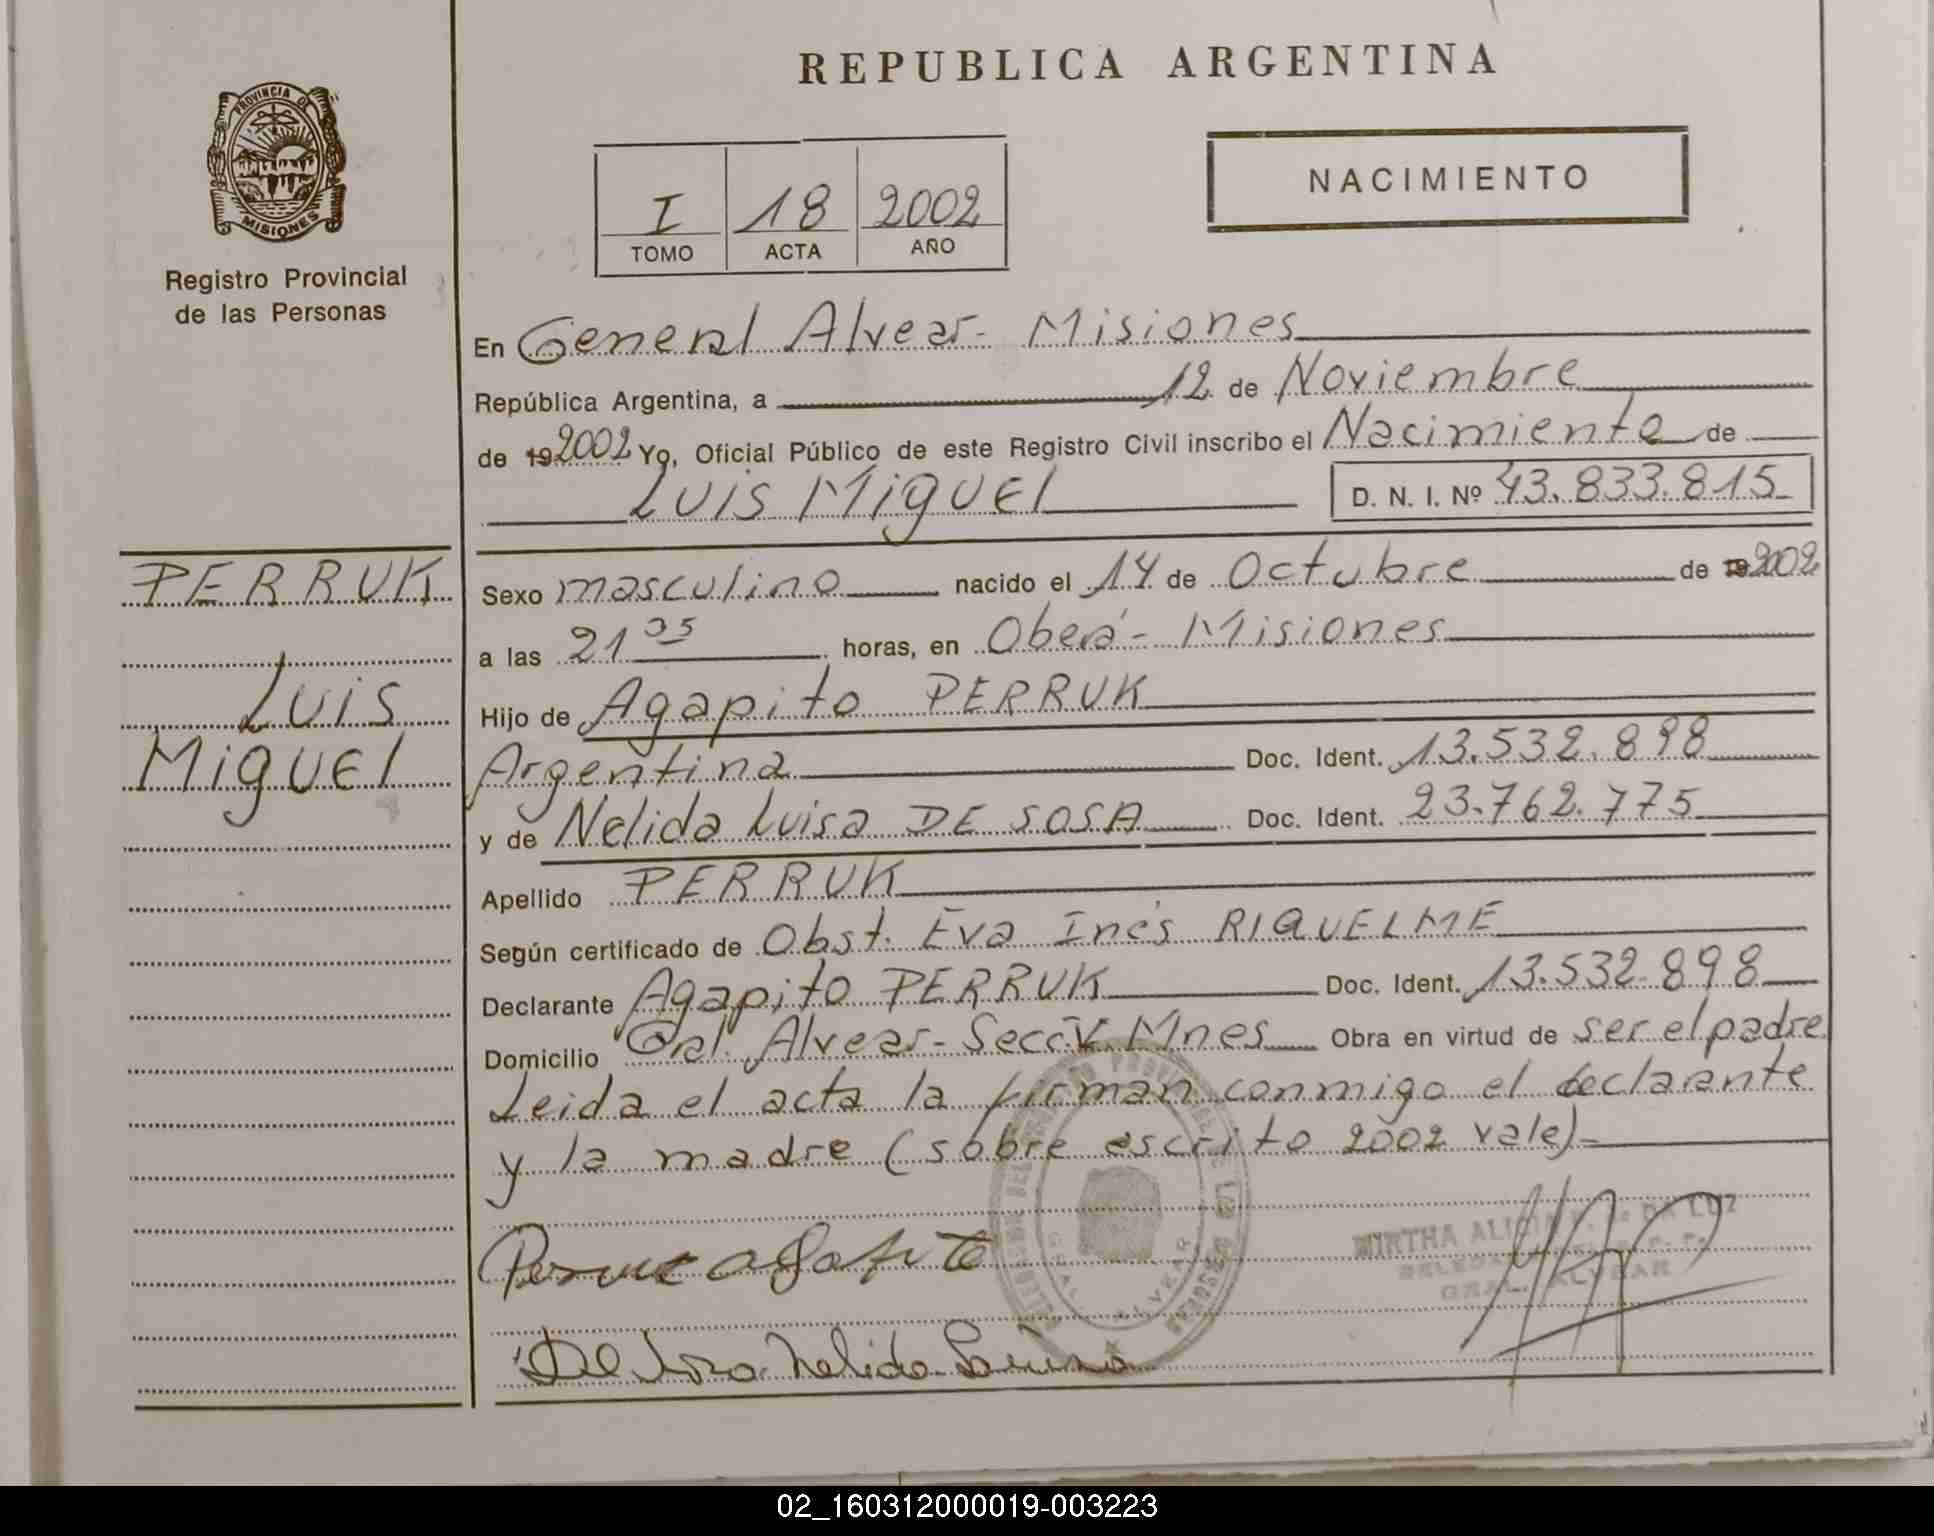 REPUBLICA ARGENTINA
PROVINCIA DE
MISIONES
Registro Provincial
de las Personas
I 18 2002
TOMO ACTA AÑO
NACIMIENTO
En General Alvear - Misiones
República Argentina, a 12 de Noviembre
de 19 2002 Yo, Oficial Público de este Registro Civil inscribo el Nacimiento de
Luis Miguel D. N. I. Nº 43.833.815
PERRUK
Luis
Miguel
Sexo masculino nacido el 14 de Octubre de 19 2002
a las 21 05 horas, en Oberá - Misiones
Hijo de Agapito PERRUK
Argentina Doc. Ident. 13.532.898
y de Nelida Luisa DE SOSA Doc. Ident. 23.762.775
Apellido PERRUK
Según certificado de Obst. Eva Inés RIQUELME
Declarante Agapito PERRUK Doc. Ident. 13.532.898
Domicilio Gral. Alvear - Secc. V. Mnes Obra en virtud de ser el padre
Leida el acta la firman conmigo el declarante
y la madre (sobre escrito 2002 vale) -
GRAL. ALVEAR
MIRTHA ALICIA DA LUZ
GRAL. ALVEAR
De Sosa Nelida Luisa
02_160312000019-003223